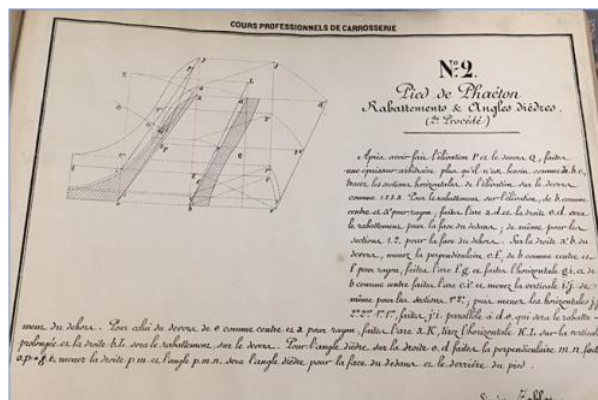 COURS PROFESSIONNELS DE CARROSSERIE
N° 2.
Pied de Phaëton
Rabattements & Angles dièdres.
(2e Procédé)
Après avoir fait l'élévation P et le devers Q, faites
une épaisseur arbitraire plus qu'il n'est besoin comme
tracez les sections horizontales de l'élévation sur le devers
comme 1.2.3. Pour le rabattement sur l'élévation, de b comme
centre et a' pour rayon, faites l'arc a.d et la droite o.d. sera
le rabattement pour la face du dedans ; de même pour les
sections 1.2. pour la face du dehors. Sur la droite a' b. du
devers, menez la perpendiculaire e.f, de b comme centre et
f pour rayon, faites l'arc f.g. et faites l'horizontale g.i. et de
b comme centre faites l'arc et menez la verticale i'j. de
même pour les sections puis menez les horizontales
faites j.i. parallèle à d.o, qui sera le rabatte-
ment du dehors. Pour celui du devers de o comme centre et a pour rayon, faites l'arc a.K, tirez l'horizontale K.L. sur la verticale
prolongée et la droite b.L. sera le rabattement sur le devers. Pour l'angle dièdre sur la droite o.d faites la perpendiculaire m.n. faites
menez la droite p.m. et l'angle p.m.n. sera l'angle dièdre pour la face du dedans et le derrière du pied.